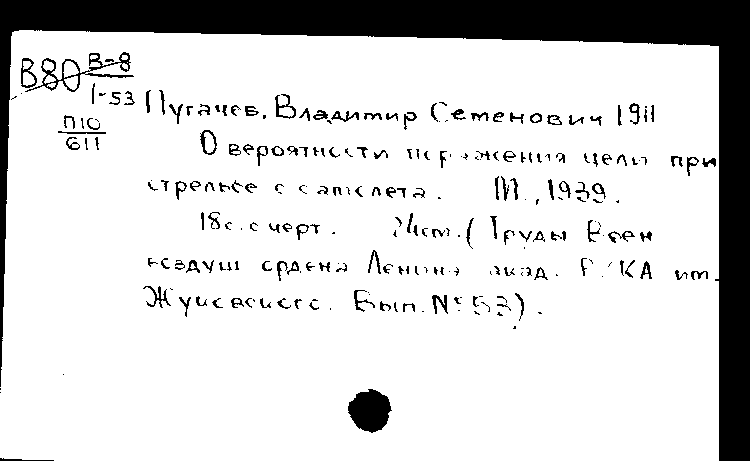 В80 В-8
1-53
П10
611
Пугачев, Владимир Семенович 1911
О вероятности поражения цели при
стрельбе с самолета. М., 1939.
18с. с черт. 24см. (Труды Воен
воздуш ордена Ленина акад. РККА им.
Жуковского. Вып. № 53).